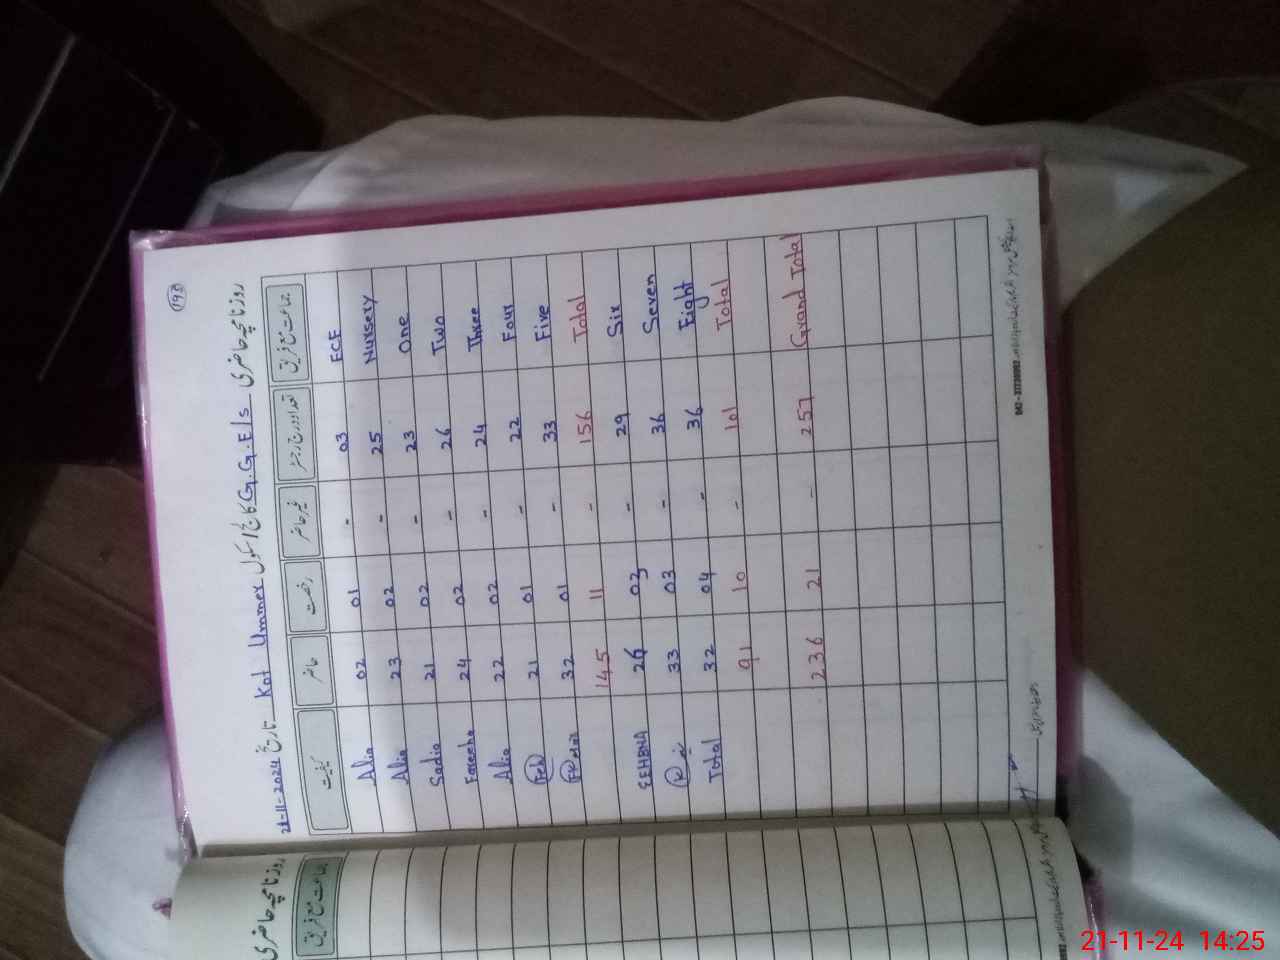 193
روزنامچہ حاضری G.G.E/S کالج/سکول Kot Ummer تاریخ 21-11-2024
جماعت مع فریق تعداد درج رجسٹر غیر حاضر رخصت حاضر کیفیت
ECE 03 - 01 02 Alia
Nursery 25 - 02 23 Alia
One 23 - 02 21 Sadia
Two 26 - 02 24 Fareeha
Three 24 - 02 22 Alia
Four 22 - 01 21
Five 33 - 01 32
Total 156 - 11 145
Six 29 - 03 26
Seven 36 - 03 33
Eight 36 - 04 32 Total
Total 101 - 10 91
Grand Total 257 - 21 236
روزنامچہ حاضری
جماعت مع فریق
21-11-24 14:25